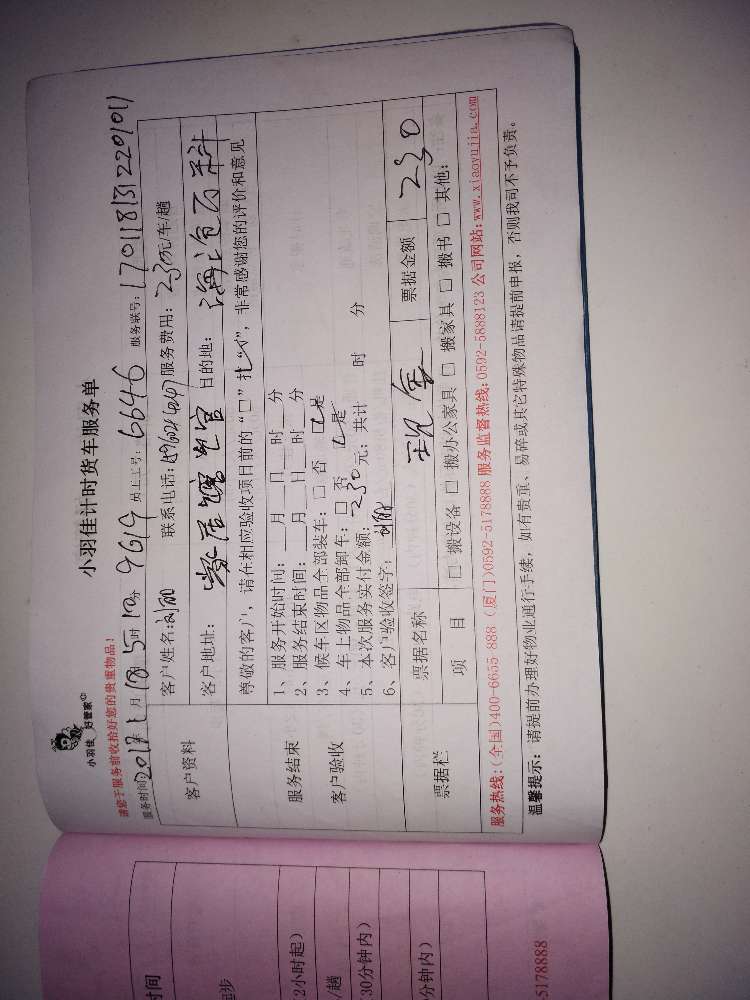 小羽佳 好管家
小羽佳计时货车服务单
请您于服务前收拾好您的贵重物品!
服务时间: 2017年1月18日5时10分 9619 员工工号: 6646 服务联号: 170118131220101
客户资料
客户姓名: 联系电话: 服务费用: 230元/车/趟
客户地址: 目的地: 海沧百科
服务结束
客户验收
尊敬的客户,请在相应验收项目前的“口”打“√”,非常感谢您的评价和意见
1、服务开始时间:___月___日___时___分
2、服务结束时间:___月___日___时___分
3、候车区物品全部装车:□ 否 ☑是
4、车上物品全部卸车:□ 否 ☑是
5、本次服务实付金额: 230元;共计 时 分
6、客户验收签字:
票据栏
票据名称 现金 票据金额 230
项 目 □ 搬设备 □ 搬办公家具 □ 搬家具 □ 搬书 □ 其他:
服务热线:(全国)400-6655-888 (厦门)0592-5178888 服务监督热线:0592-5888123 公司网站:www.xiaoyujia.com
温馨提示:请提前办理好物业通行手续,如有贵重、易碎或其它特殊物品请提前申报,否则我司不予负责。
时间
起步
2小时起)
/趟
30分钟内)
分钟内)
5178888